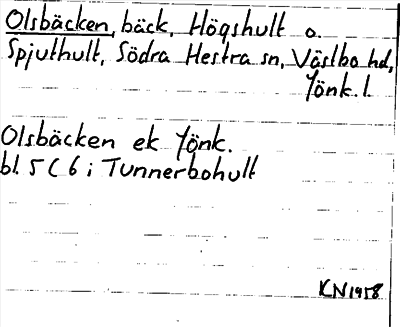 Olsbäcken, bäck, Högshult o.
Spjuthult, Södra Hestra sn, Västbo hd,
Jönk. l.
Olsbäcken ek Jönk.
bl. 5 C 6 i Tunnerbohult
KN 1958